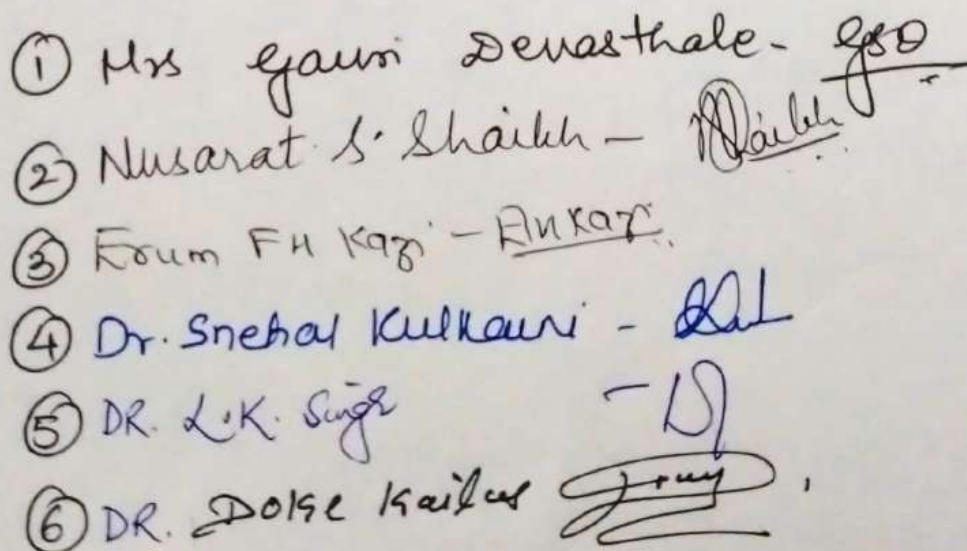 ① Mrs Gauri Devasthale - GSD
② Nusarat S. Shaikh - Shaikh
③ Erum FH Kazi - Kazi
④ Dr. Snehal Kulkarni -
⑤ DR. L.K. Singh -
⑥ DR. Doke Kailas